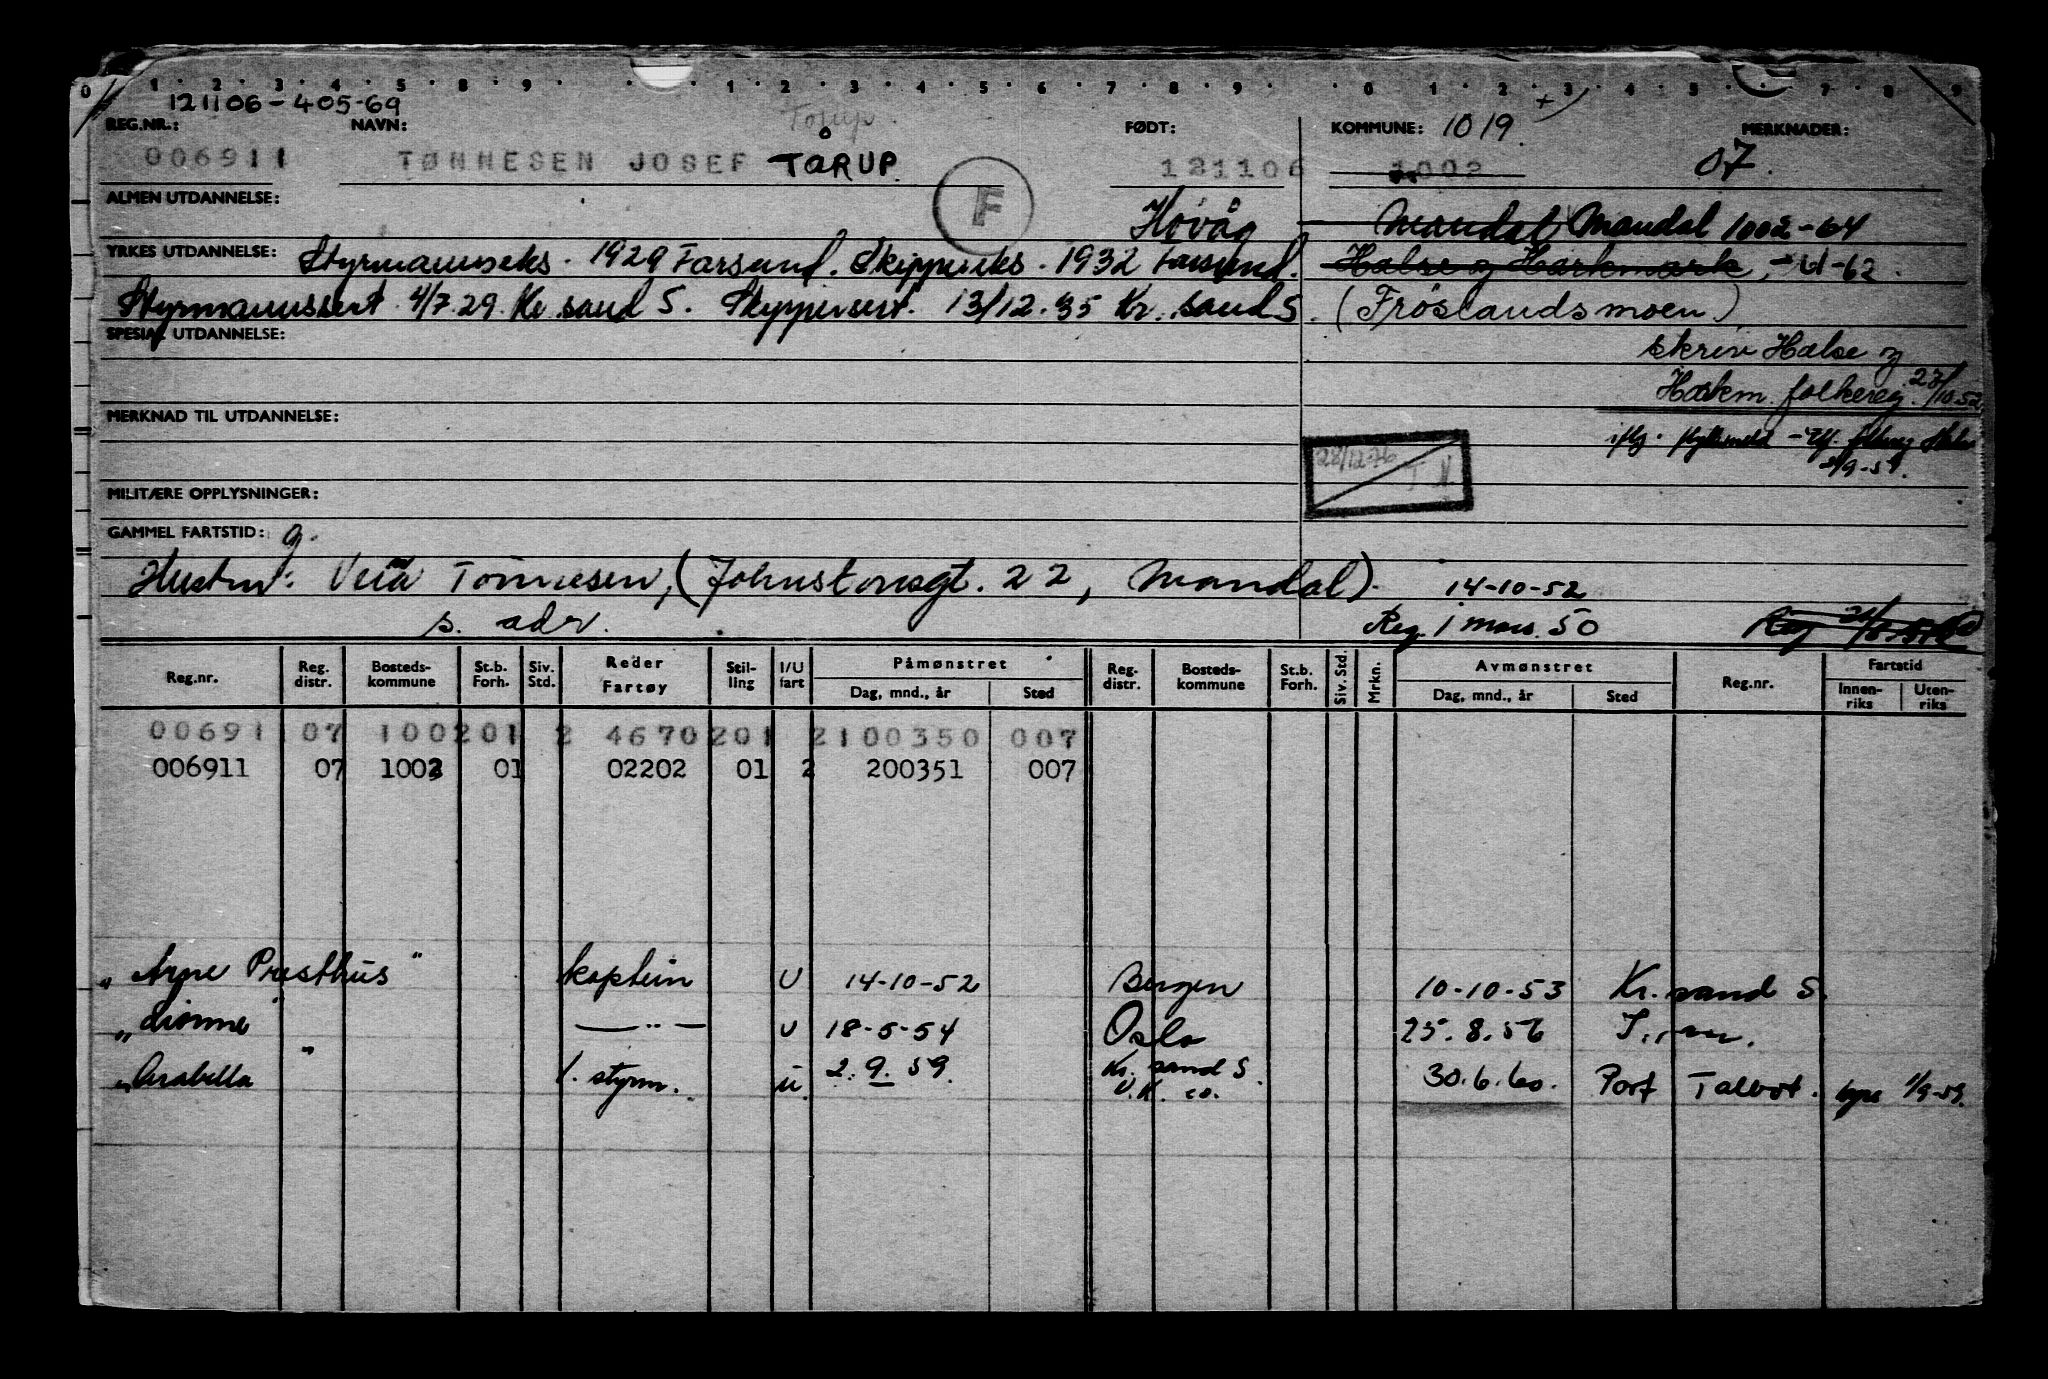 0 1 2 3 4 5 8 9 1 2 3 4 5 6 7 8 9 0 1 2 3 4 5 7 8 9
121106-405-69
Torup
REG.NR.: NAVN: FØDT: KOMMUNE: 1019 MERKNADER:
006911 TØNNESEN JOSEF TÅRUP 121106 1002 07.
F
ALMEN UTDANNELSE: Høvåg Mandal Mandal 1002-64
YRKES UTDANNELSE: Styrmannseks. 1929 Farsund. Skippereks. 1932 Farsund. Halse og Harkmark, -62.
Styrmannssert. 4/7.29. Kr.sand S. Skippersert. 13/12.35 Kr.sand S. (Frøslandsmoen)
SPESIAL UTDANNELSE: skriv Halse og
Harkm. folkereg. 27/10.52
MERKNAD TIL UTDANNELSE:
iflg. flyttemeld folkereg Halse
/9-59.
28/12-76
MILITÆRE OPPLYSNINGER:
GAMMEL FARTSTID: g.
Hustru: Vera Tønnesen, (Johnstonsgt. 22, Mandal). 14-10-52
s. adr. Reg. i mars. 50 Reg
Reg.nr. Reg. distr. Bosteds-kommune St.b. Forh. Siv. Std. Reder Fartøy Stil-ling I/U fart Påmønstret Dag, mnd., år Sted Reg. distr. Bosteds-kommune St.b. Forh. Siv. Std. Mrkn. Avmønstret Dag, mnd., år Sted Reg.nr. Fartstid Innen-riks Uten-riks
00691 07 100201 2 4670201 2100350 007
006911 07 1002 01 02202 01 2 200351 007
"Arne Presthus" kaptein U 14-10-52 Bergen 10-10-53 Kr.sand S.
"Lionne" —"— U 18-5-54 Oslo 25.8.56
"Arabella" 1. styrm. U. 2.9.59. Kr.sand S. 30.6.60. Port Talbot. 1/9-59.
U.K. co.